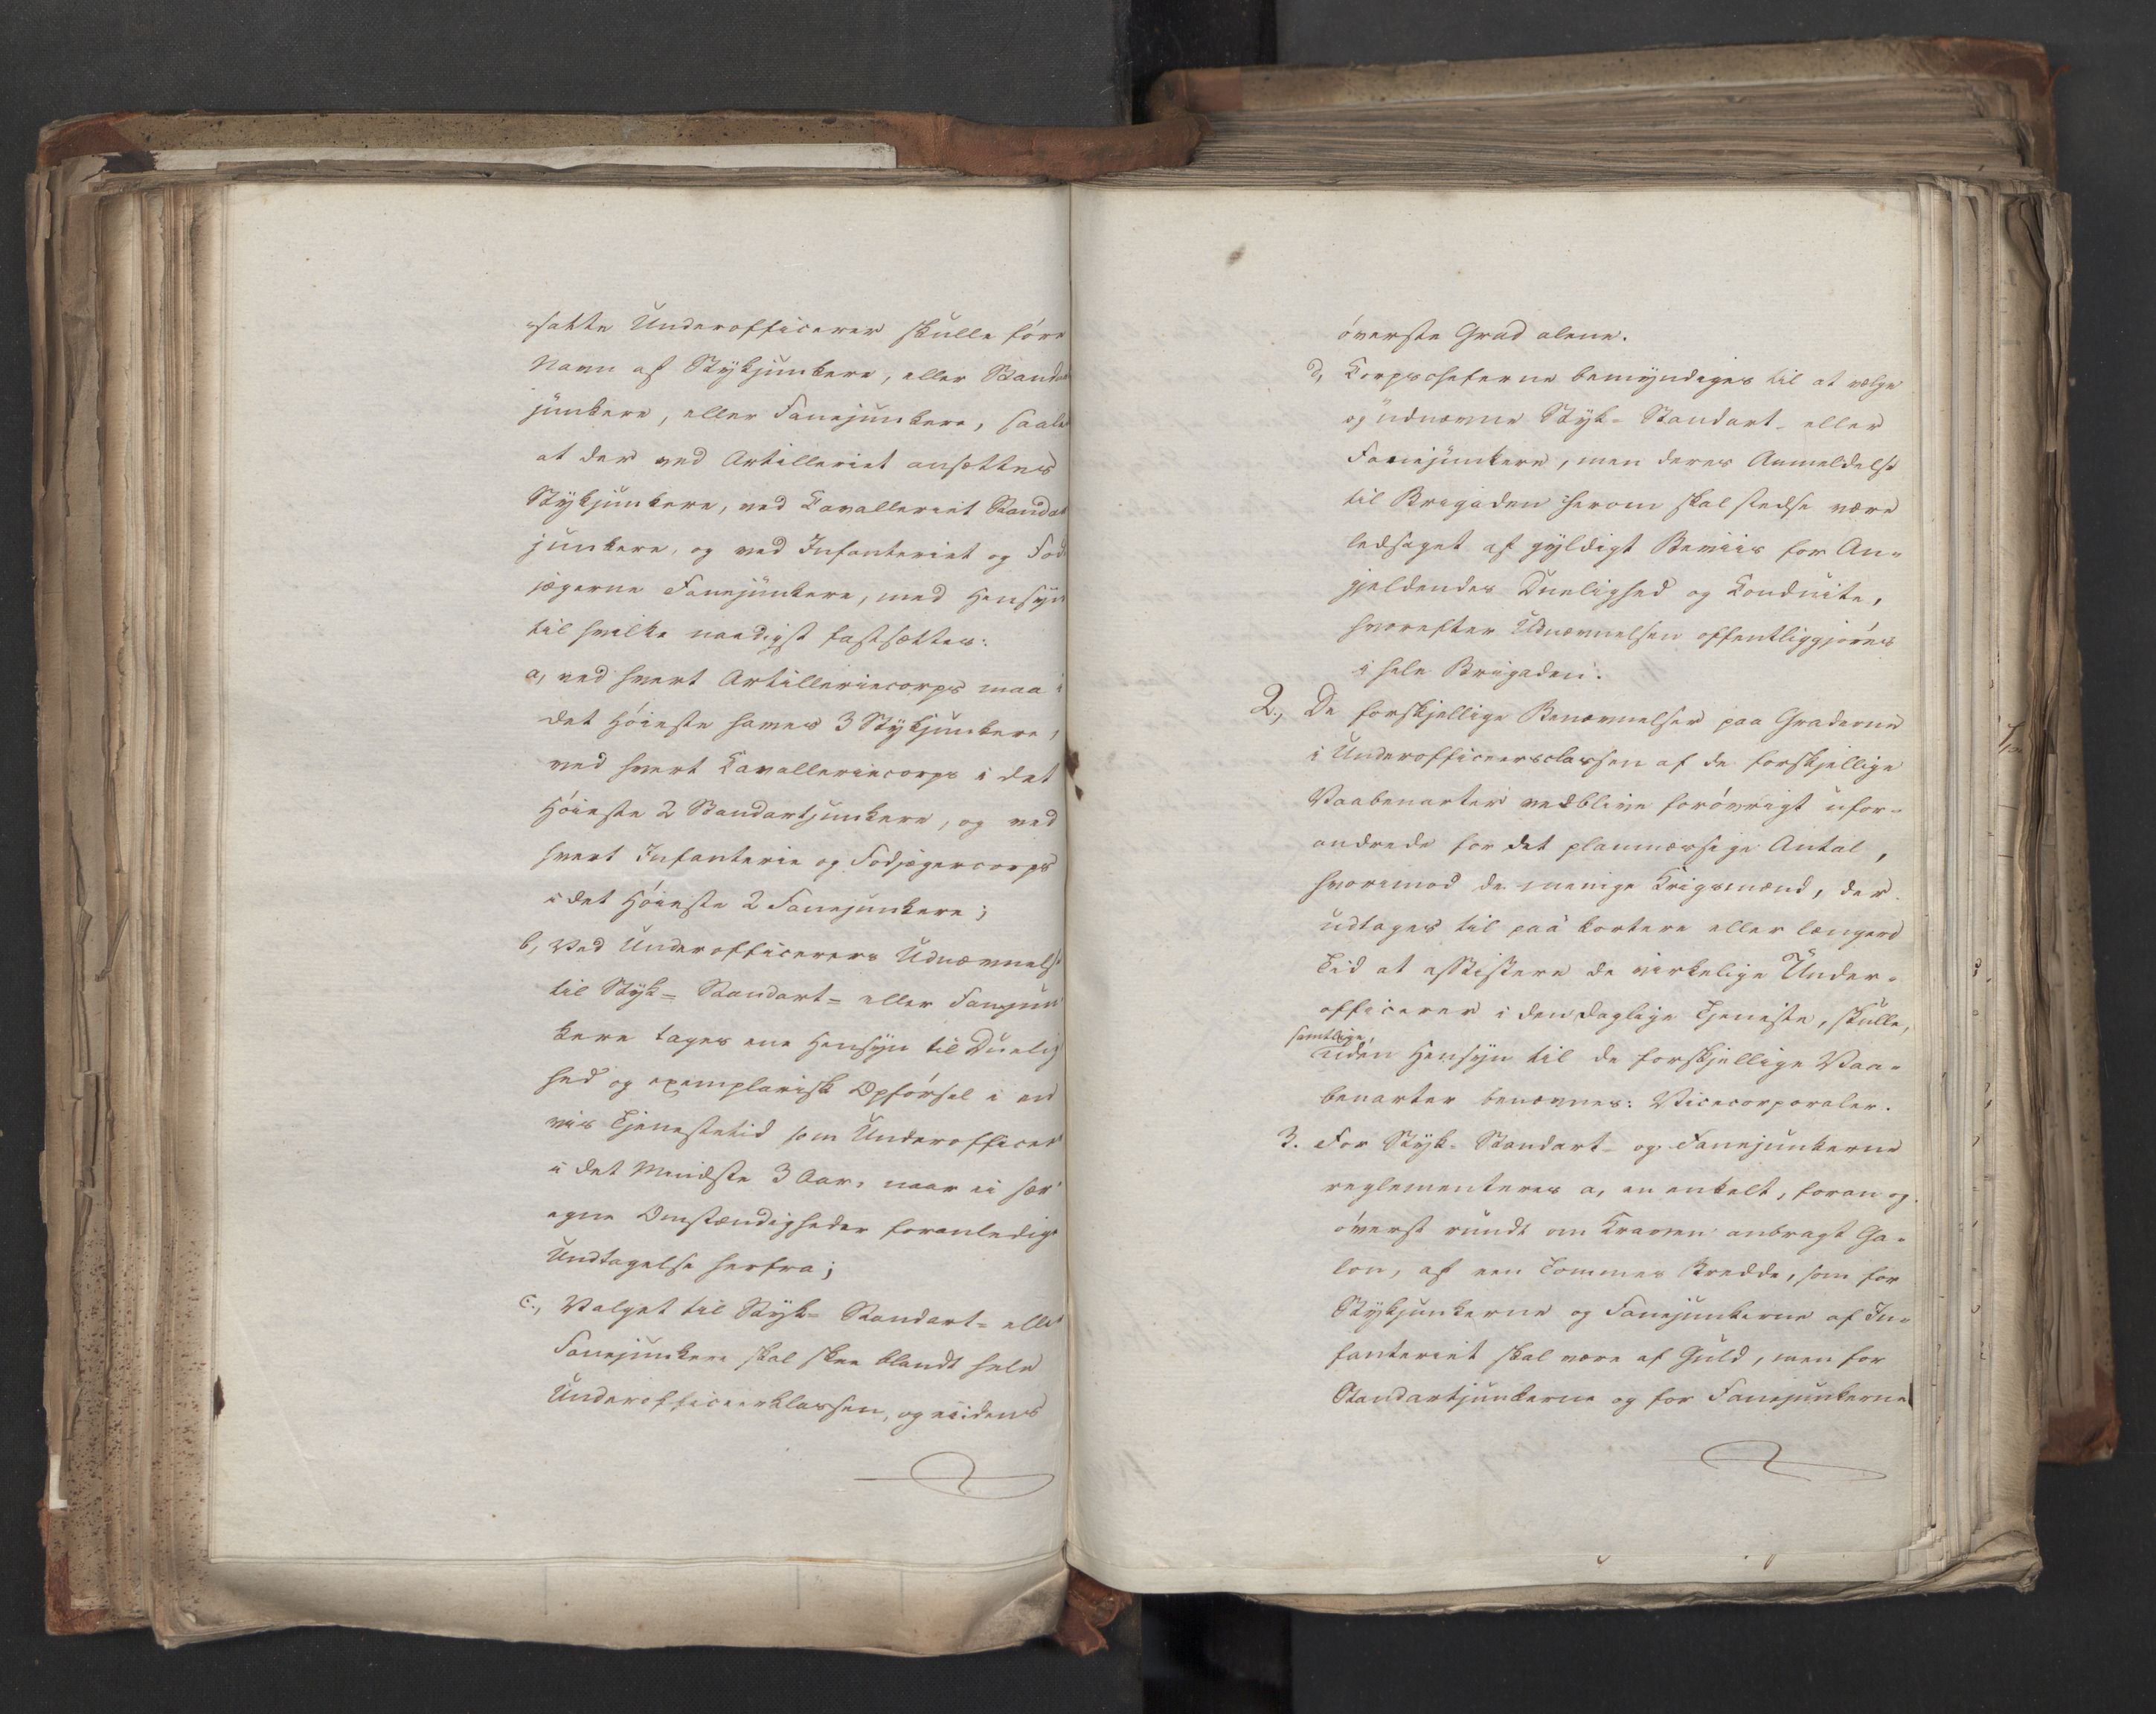 satte Underofficerer skulle føre
Navn af Stykjunkere, eller Standart
junkere, eller Fanejunkere, saale
at der ved Artilleriet ansættes
Stykjunkere, ved Cavalleriet Standart
junkere, og ved Infanteriet og Fod
jægerne Fanejunkere, med Hensyn
til hvilke naadigst fastsættes:
a, ved hvert Artilleriecorps maa i
det Høieste haves 3 Stykjunkere,
ved hvert Cavalleriecorps i det
Høieste 2 Standartjunkere, og ved
hvert Infanterie og Fodjægercorps
i det Høieste 2 Fanejunkere;
b, Ved Underofficerers Udnævnelse
til Styk= Standart= eller Fanejun
kere tages ene Hensyn til Duelig
hed og exemplarisk Opførsel i en
vis Tjenestetid som Underofficer
i det Mindste 3 Aar, naar ei sær
egne Omstændigheder foranledige
Undtagelse herfra;
c., Valget til Styk= Standart= eller
Fanejunkere skal skee blandt hele
Underofficeerklassen, og ei i dens
øverste Grad alene.
d, Corpscheferne bemyndiges til at vælge
og udnævne Styk= Standart= eller
Fanejunkere, men deres Anmeldelse
til Brigaden herom skal stedse være
ledsaget af gyldigt Beviis for An=
gjeldendes Duelighed og Conduite,
hvorefter Udnævnelsen offentliggjøres
i hele Brigaden.
2., De forskjellige Benævnelser paa Graderne
i Underofficeersclassen af de forskjellige
Vaabenarter vedblive forøvrigt ufor=
andrede for det planmæssige Antal,
hvorimod de menige Krigsmænd, der
udtages til paa kortere eller længere
Tid at assistere de virkelige Under=
officerer i den daglige Tjeneste, skulle,
samtlige,
uden Hensyn til de forskjellige Vaa=
benarter benævnes: Vicecorporaler.
3. For Styk= Standart= og Fanejunkerne
reglementeres a, en enkelt, foran og
øverst rundt om Kraven anbragt Ga=
lon, af een Tommes Bredde, som for
Stykjunkerne og Fanejunkerne af In=
fanteriet skal være af Guld, men for
Standartjunkerne og for Fanejunkerne